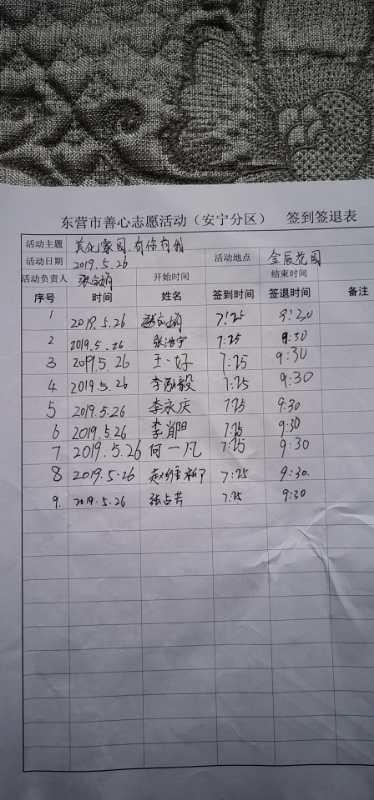 东营市善心志愿活动（安宁分区） 签到签退表
活动主题 美化家园 有你有我
活动日期 2019.5.26 活动地点 金辰花园
活动负责人 开始时间 结束时间
序号 时间 姓名 签到时间 签退时间 备注
1 2019.5.26 7:25 9:30
2 2019.5.26 7:25 9:30
3 2019.5.26 王一好 7:25 9:30
4 2019.5.26 7:25 9:30
5 2019.5.26 李永庆 7:25 9:30
6 2019.5.26 李月阳 7:25 9:30
7 2019.5.26 何一凡 7:25 9:30
8 2019.5.26 7:25 9:30.
9. 2019.5.26 张占芳 7:25 9:30